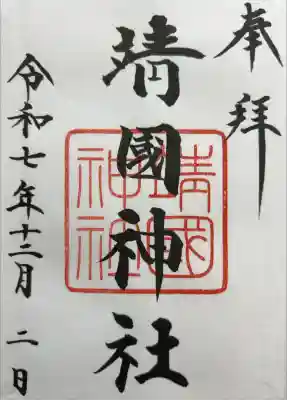 奉拝
靖國神社
靖國神社
令和七年十二月二日